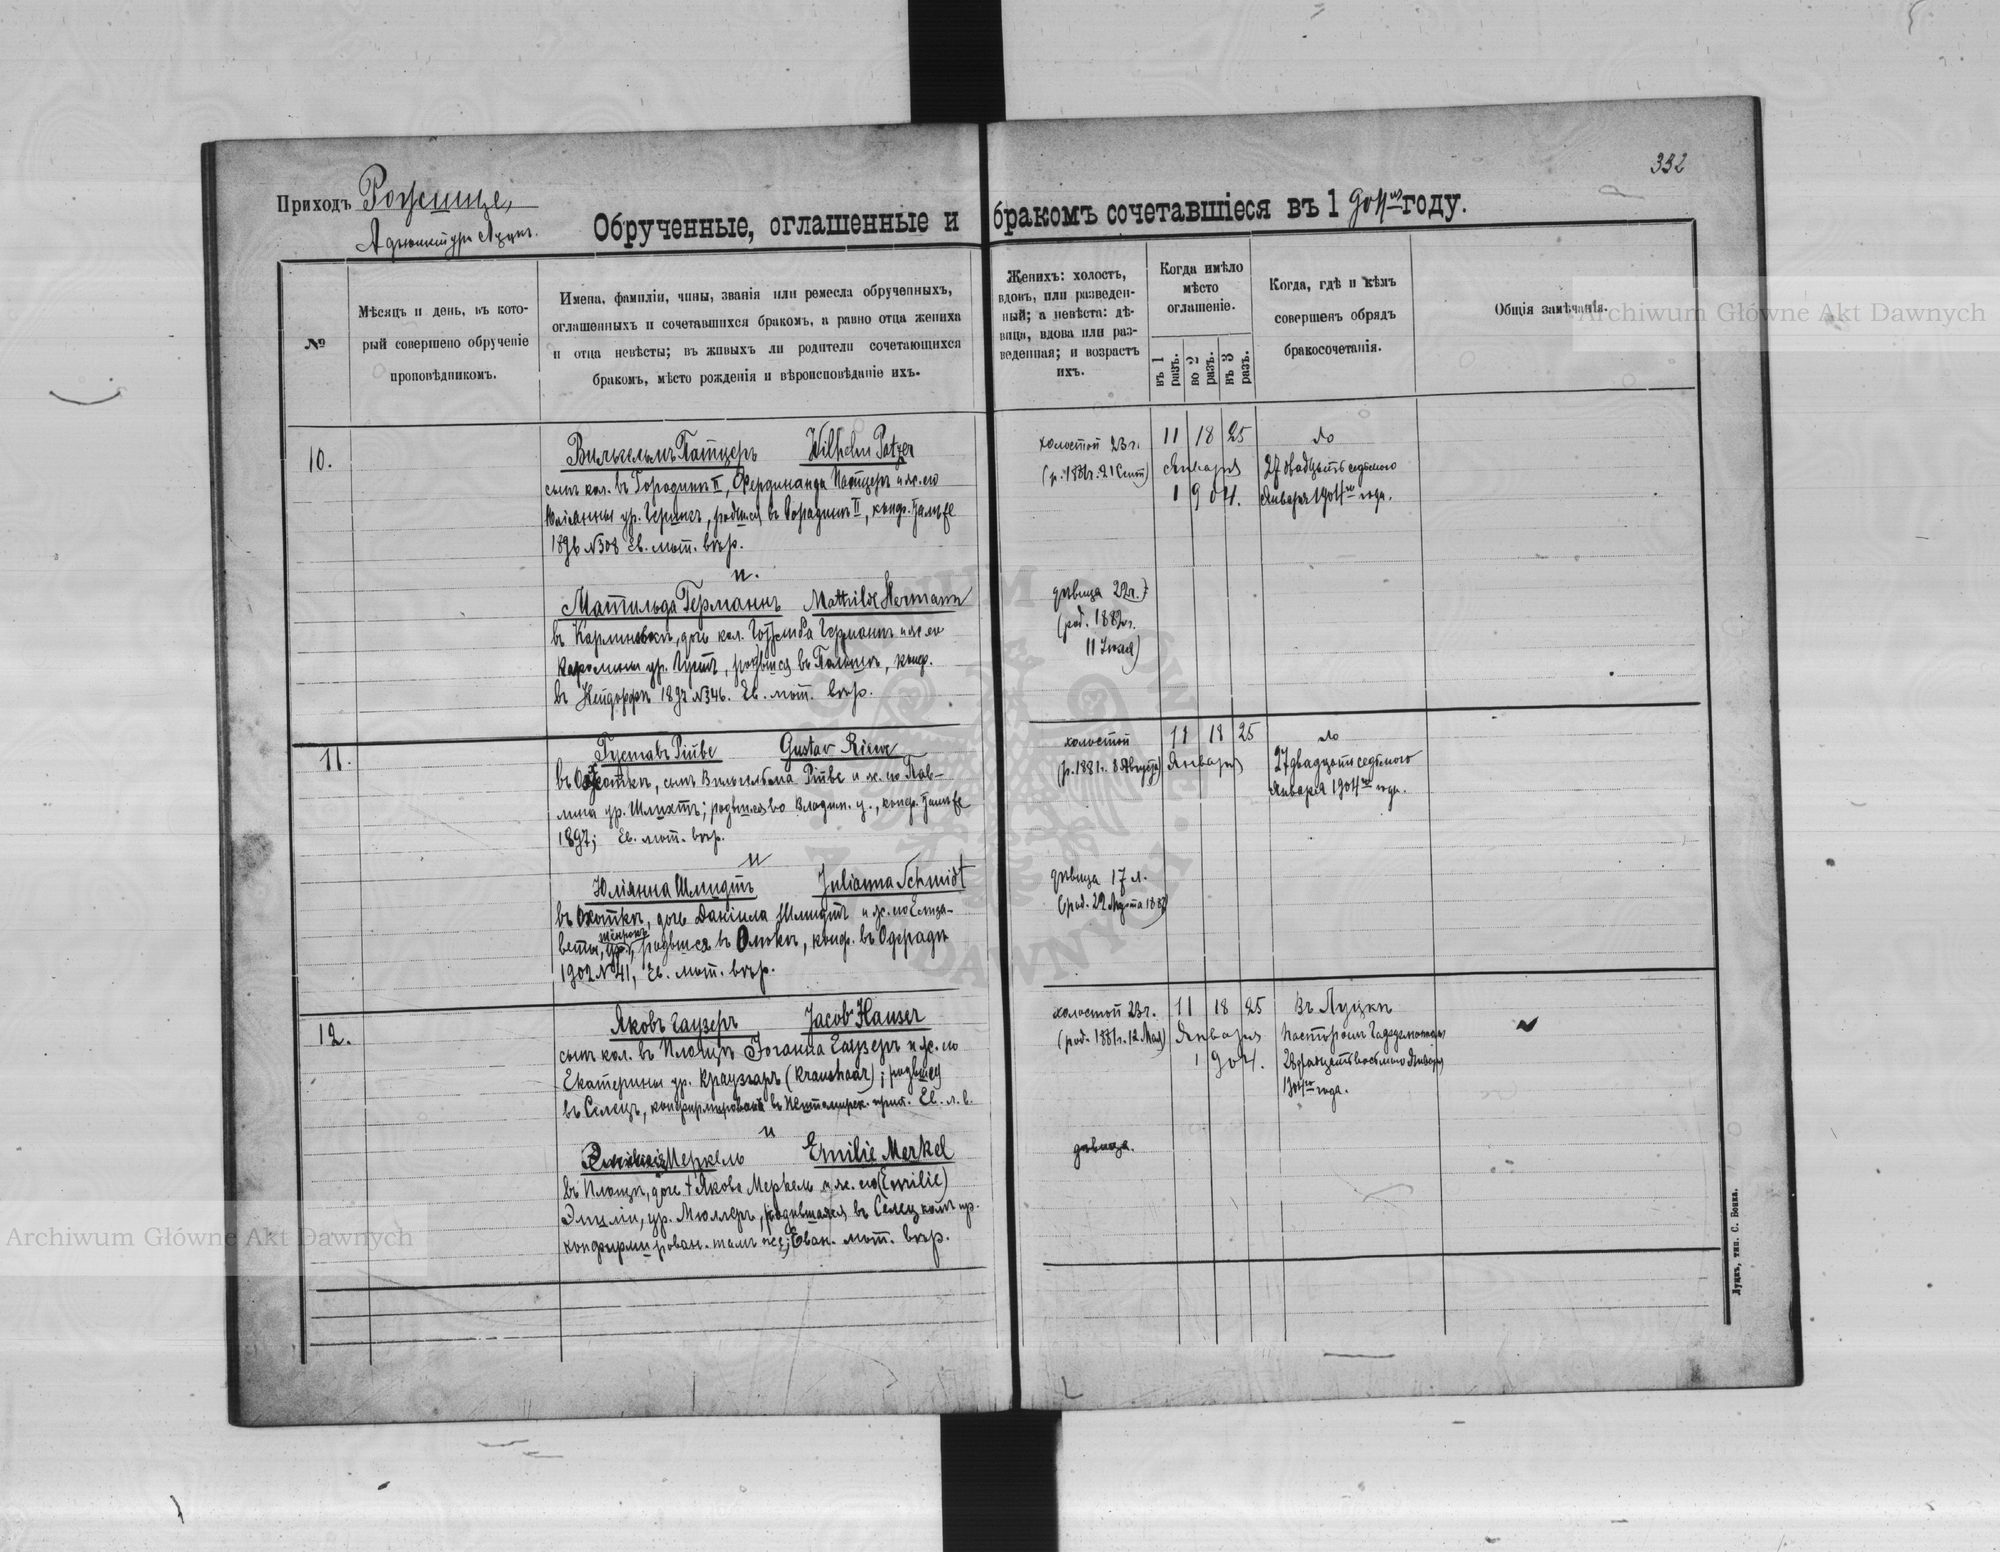 332
Приходъ Рожище,
Адъюнктура Луцкъ.
Обрученные, оглашенные и бракомъ сочетавшіеся въ 1904мъ году.
№
Мѣсяцъ и день, въ кото-
рый совершено обрученіе
проповѣдникомъ.
Имена, фамиліи, чины, званія или ремесла обрученныхъ,
оглашенныхъ и сочетавшихся бракомъ, а равно отца жениха
и отца невѣсты; въ живыхъ ли родители сочетающихся
бракомъ, мѣсто рожденія и вѣроисповѣданіе ихъ.
Женихъ: холостъ,
вдовъ, или разведен-
ный; а невѣста: дѣ-
вица, вдова или раз-
веденная; и возрастъ
ихъ.
Когда имѣло
мѣсто
оглашеніе.
въ 1
разъ.
во 2
разъ.
въ 3
разъ.
Когда, гдѣ и кѣмъ
совершенъ обрядъ
бракосочетанія.
Общія замѣчанія.
10.
Вильгельмъ Патцеръ Wilhelm Patzer
сынъ кол. въ Городинѣ II, Фердинанда Патцеръ и ж. его
Юліанны ур. родился въ Городинѣ II, конф.
1896 №308 Ев. лют. вѣр.
и.
Матильда Германъ Mathilde Hermann
въ дочь кол. Готлиба Германъ и ж. его
Каролины ур. родився въ Польшѣ, конф.
въ Нейдорфѣ 1897 №346. Ев. лют. вѣр.
холостой 23 г.
(р. 1881г. 21 Сент)
11 18 25
Января
1904.
до
27 двадцать седьмого
Января 1904го года.
дѣвица 22г.
(род. 1882г.
11
11.
Густавъ Риве Gustav Riewe
въ сынъ Вильгельма Риве и ж. его Пав-
лина ур. Шлихтъ; родился во Владим. у., конф.
1897; Ев. лют. вѣр.
и
Юліянна Шмидтъ Julianna Schmidt
въ Охоткѣ, дочь Даніила Шмидтъ и ж. его Елиза-
веты, ур. родвшся въ Олыкѣ, конф. въ
1902 №41, Ев. лют. вѣр.
холостой
(р. 1881г. 8 Августа)
11 18 25
Января
до
27 двадцати седьмого
Января 1904го года.
дѣвица 17 л.
(род. 22
12.
Яковъ Гаузеръ Jacob Hauser
сынъ кол. въ Іоганна Гаузеръ и ж. его
Екатерины ур. Краузгаръ (Kraushaar); родвшся
въ Селецъ, конфирмированъ въ прих. Ев. л. в.
и
Меркель Emilie Merkel
въ дочь † Якова Меркель и ж. его (Emilie)
Эмиліи, ур. Мюллеръ, родившаяся въ Селецкомъ пр.
конфирмирован. тамъ же; Еван. лют. вѣр.
холостой 23 г.
(род. 1881г. 12 Мая)
11 18 25
Января
1904.
Въ Луцкѣ
Пасторомъ
28 двадцать восьмого Января
1904го года.
дѣвица.
Луцкъ, тип. С. Бокка.
Archiwum Główne Akt Dawnych
Archiwum Główne Akt Dawnych